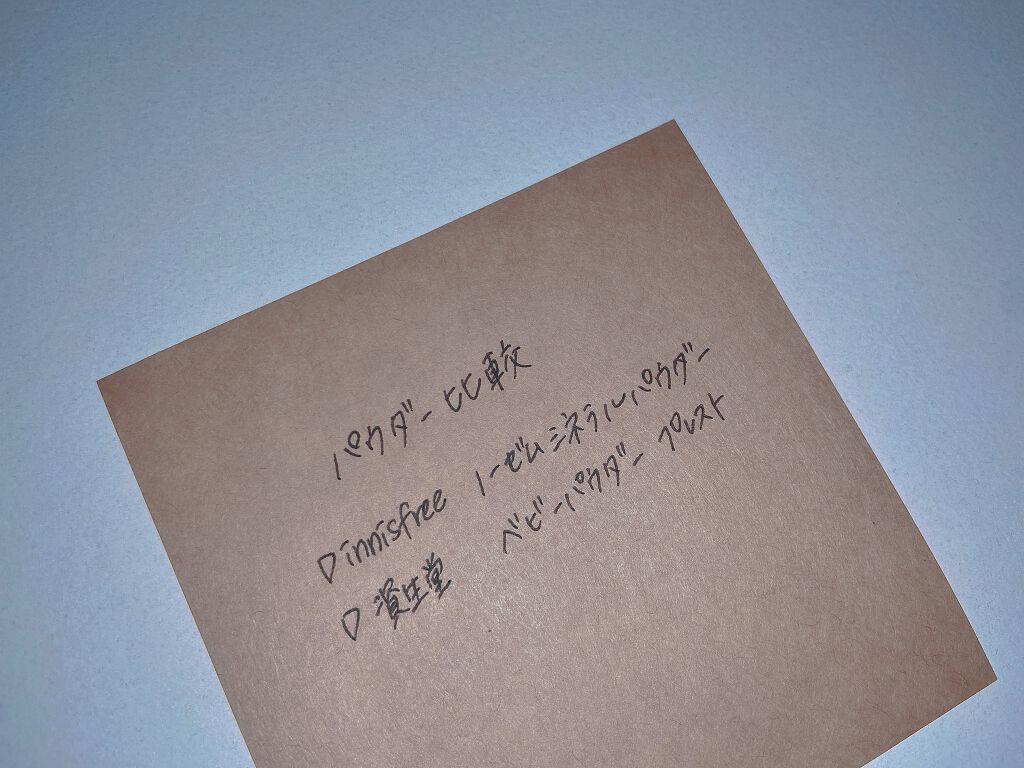 パウダー比較
□innisfree ノーゼムミネラルパウダー
□資生堂 ベビーパウダー プレスト